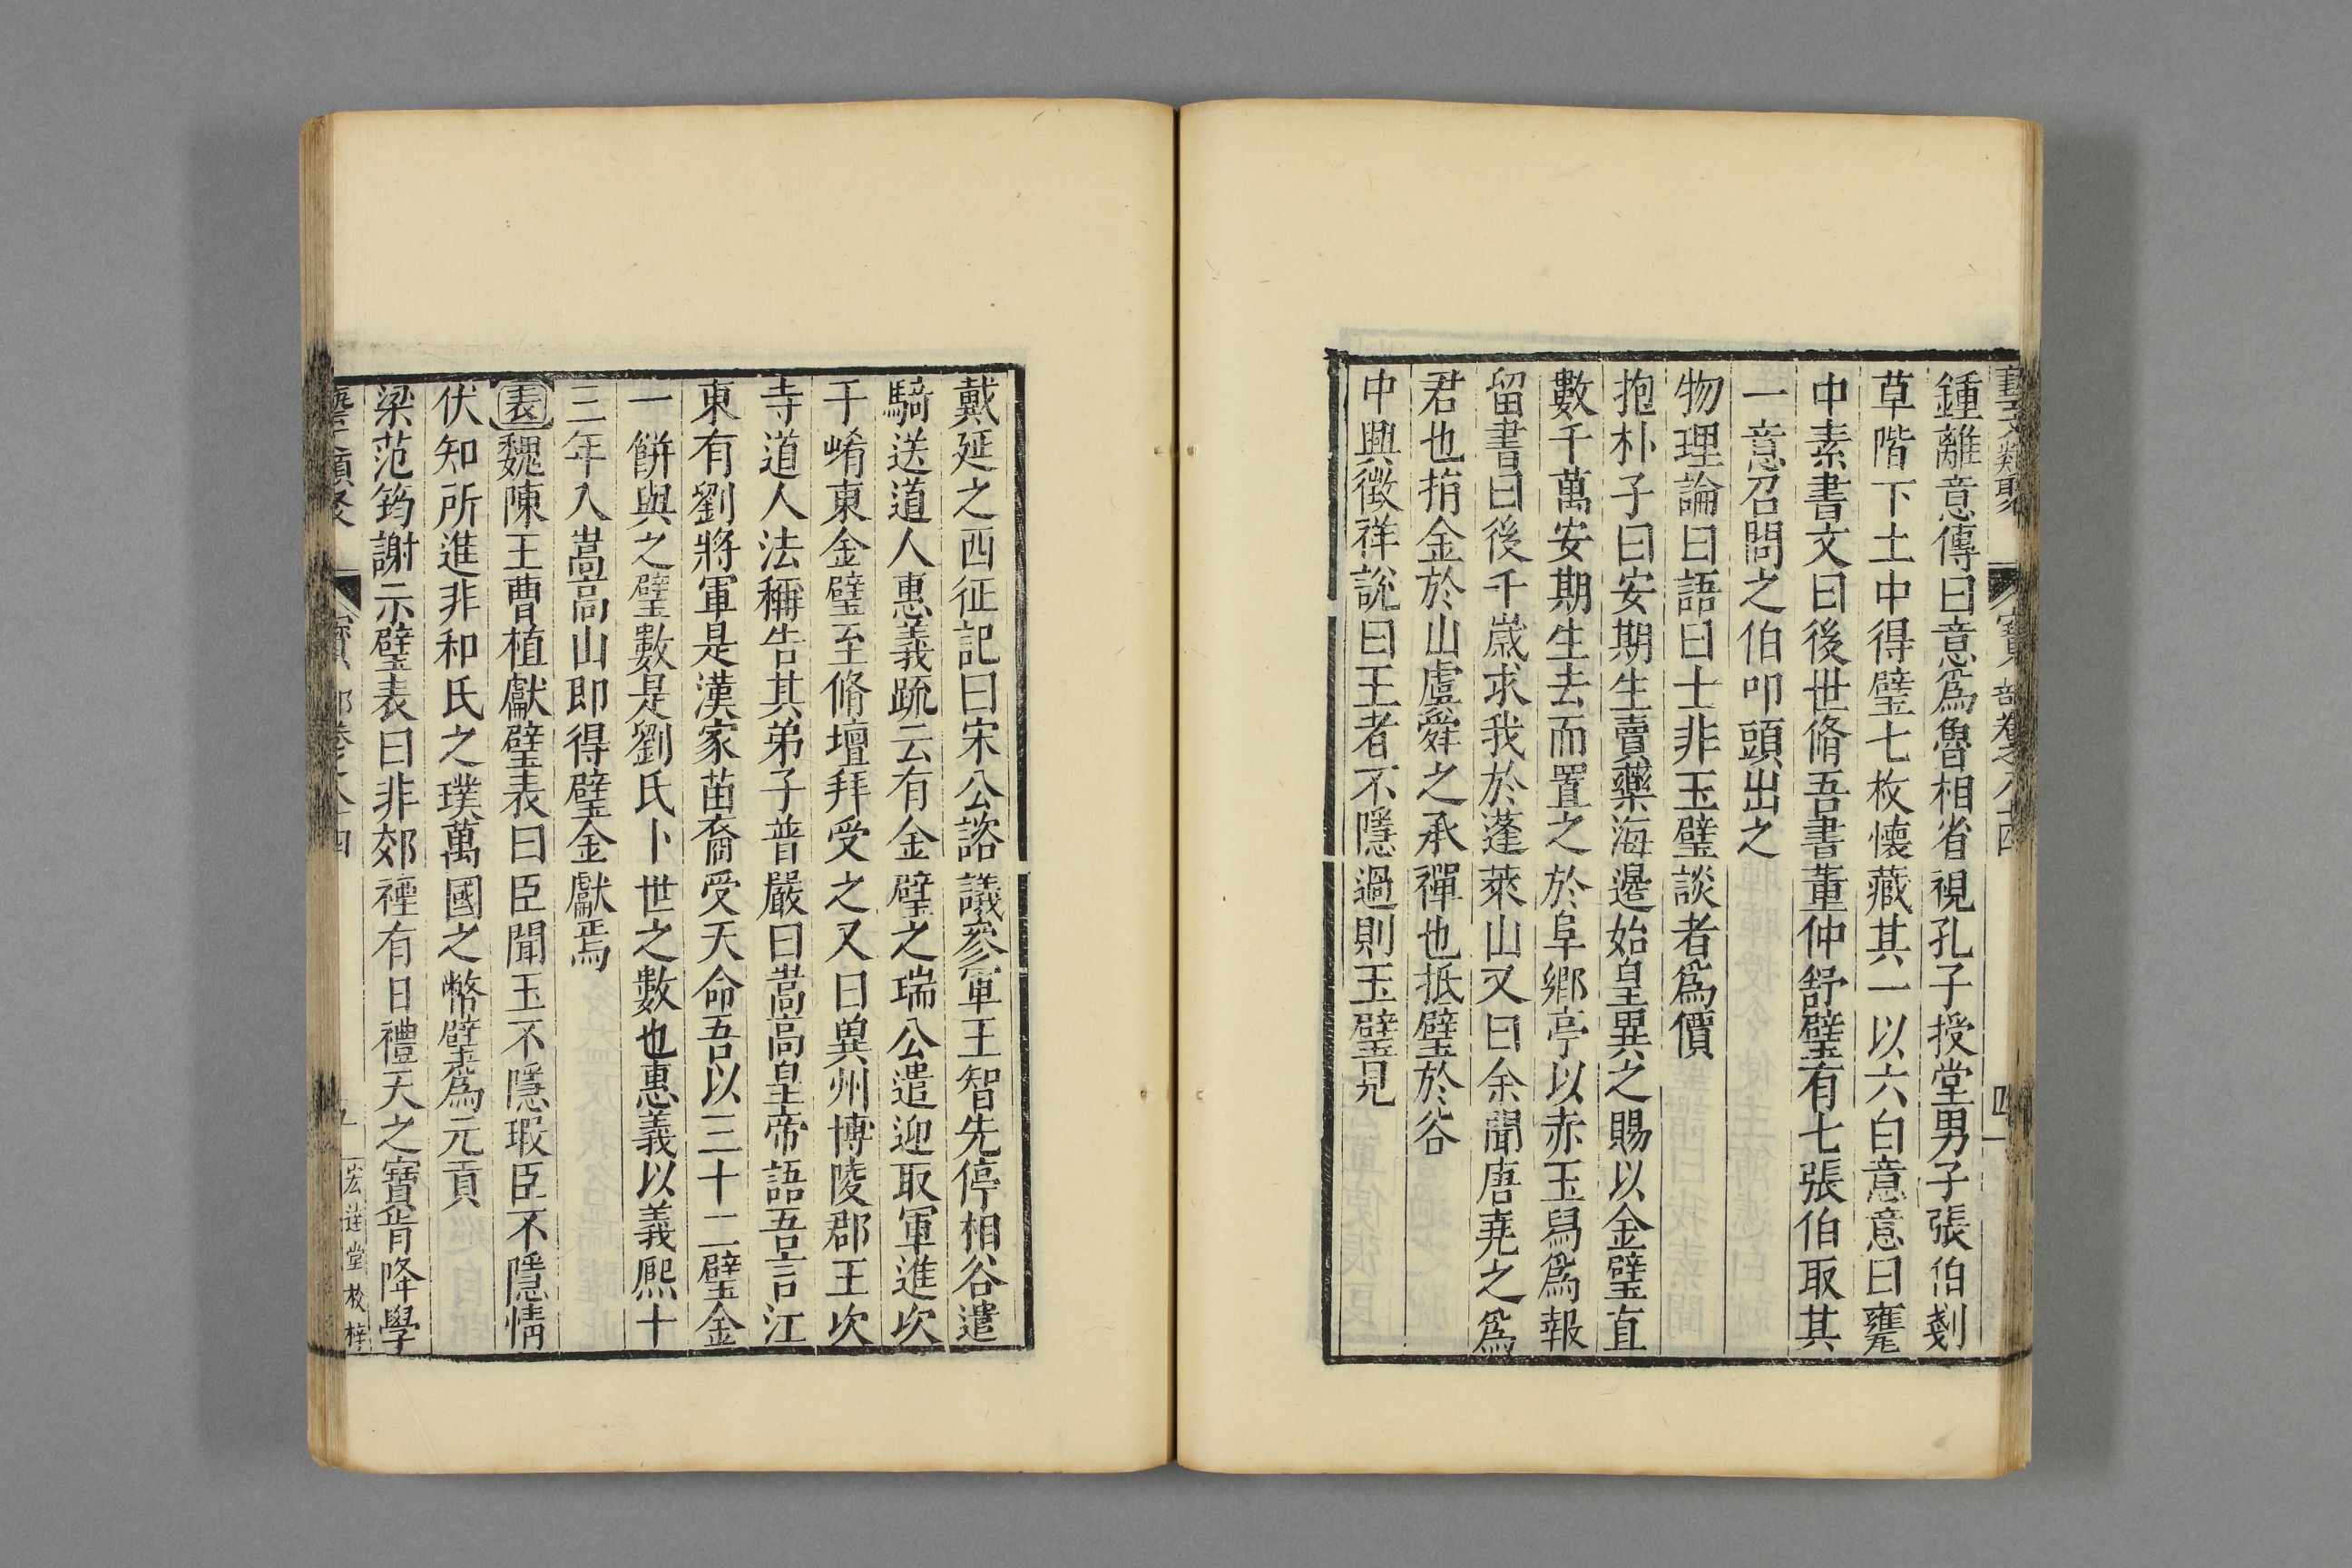 藝文類聚 寶部卷之八十四 四
鍾離意傳曰意爲魯相省視孔子授堂男子張伯剗
草階下土中得璧七枚懷藏其一以六白意意曰甕
中素書文曰後世脩吾書董仲舒璧有七張伯取其
一意召問之伯叩頭出之
物理論曰語曰士非玉璧談者爲價
抱朴子曰安期生賣藥海邊始皇異之賜以金璧直
數千萬安期生去而置之於阜鄉亭以赤玉舄爲報
留書曰後千歲求我於蓬萊山又曰余聞唐堯之爲
君也捐金於山虞舜之承禪也抵璧於谷
中興徵祥說曰王者不隱過則玉璧見
戴延之西征記曰宋公諮議參軍王智先停柏谷遣
騎送道人惠義疏云有金璧之瑞公遣迎取軍進次
于崤東金璧至脩壇拜受之又曰兾州博陵郡王次
寺道人法稱告其弟子普嚴曰嵩高皇帝語吾言江
東有劉將軍是漢家苗裔受天命吾以三十二璧金
一餅與之璧數是劉氏卜世之數也惠義以義熙十
三年入嵩高山即得璧金獻焉
表魏陳王曹植獻璧表曰臣聞玉不隱瑕臣不隱情
伏知所進非和氏之璞萬國之幣璧爲元貢
梁范筠謝示璧表曰非郊禋有日禮天之寶胥降學
藝文類聚 寶部卷之八十四 五 宏達堂校梓